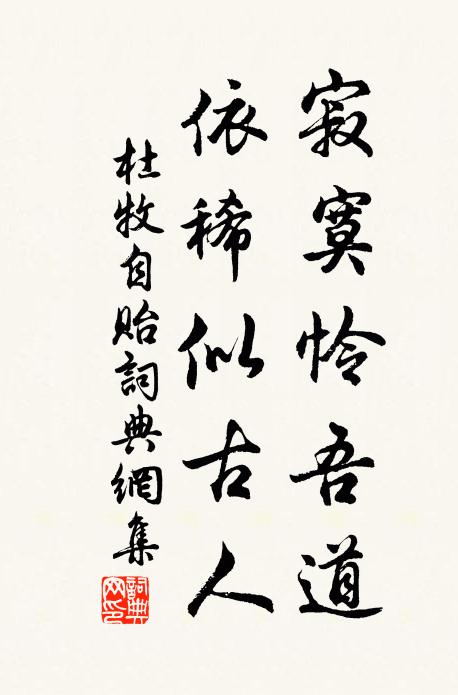 寂寞怜吾道
依稀似古人
杜牧自貽詞典網集
詞典
网印